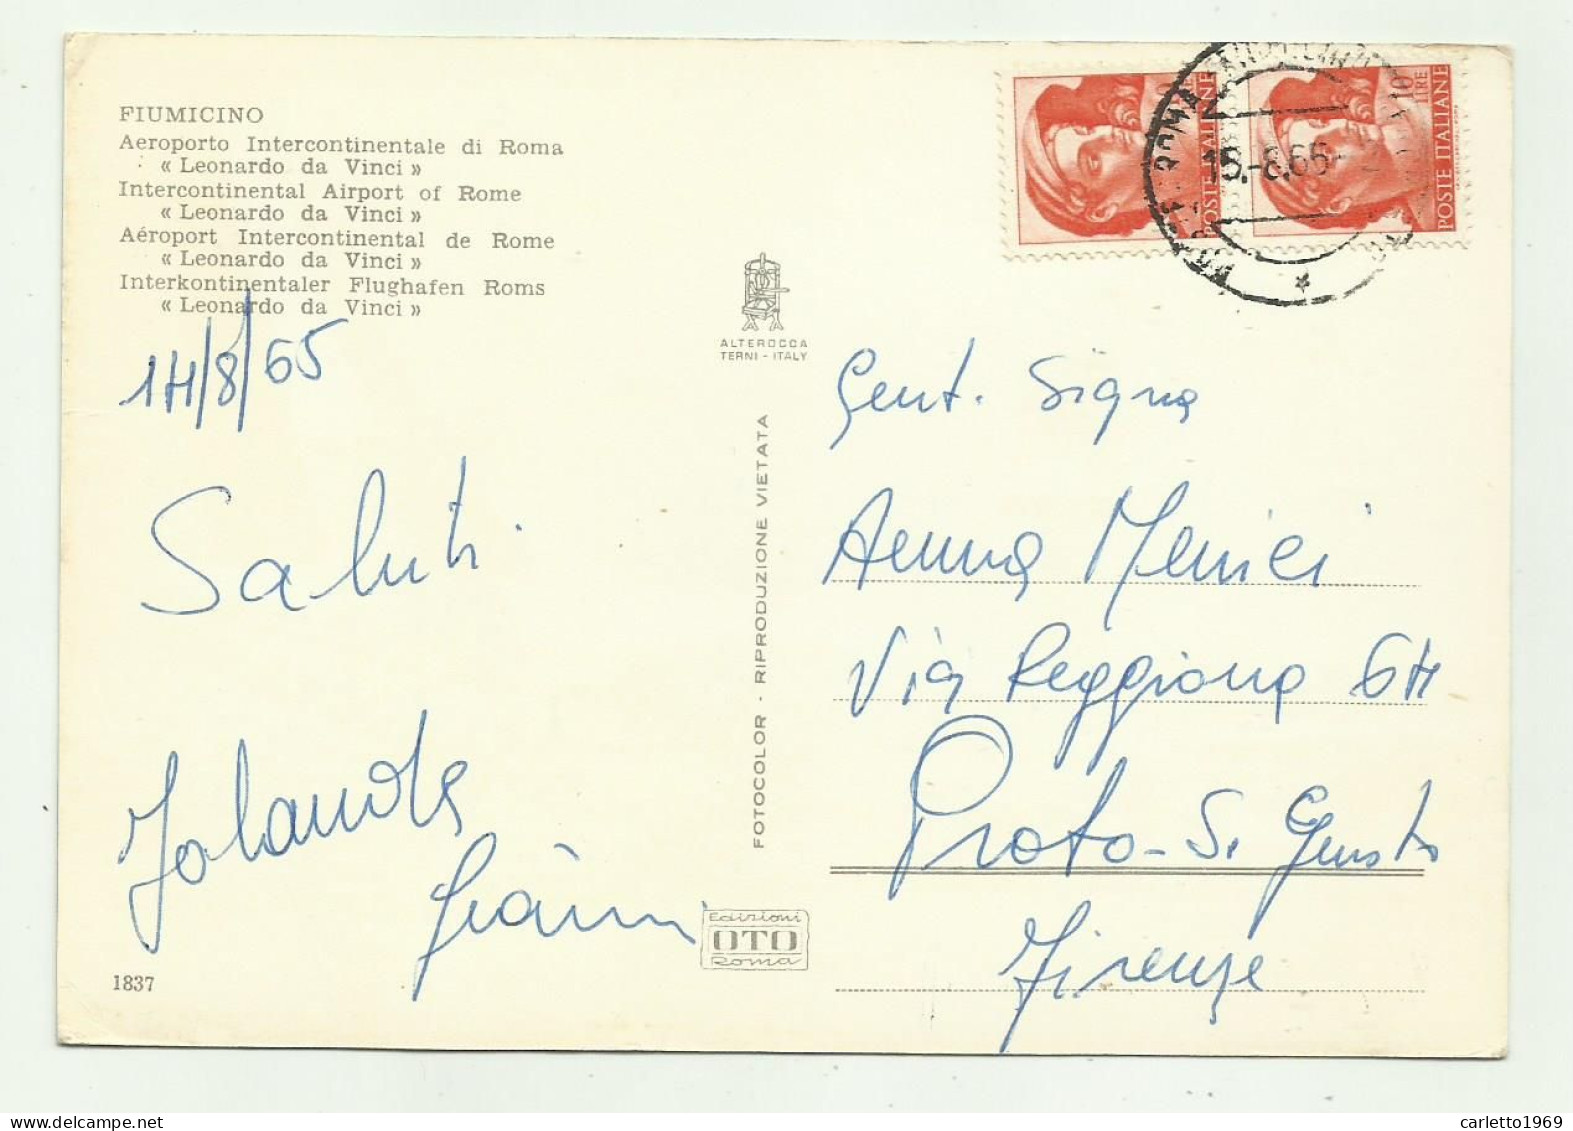 FIUMICINO
Aeroporto Intercontinentale di Roma
« Leonardo da Vinci »
Intercontinental Airport of Rome
« Leonardo da Vinci »
Aéroport Intercontinental de Rome
« Leonardo da Vinci »
Interkontinentaler Flughafen Roms
« Leonardo da Vinci »
14/8/65
Saluti
Jolanda
Gianni
1837
ALTEROCCA
TERNI - ITALY
FOTOCOLOR - RIPRODUZIONE VIETATA
Edizioni
OTO
Roma
POSTE ITALIANE
10 LIRE
POSTE ITALIANE
ROMA
Gent. Signa
Anna Menici
Via Reggiana 64
Prato - S. Giusto
Firenze
carletto1969